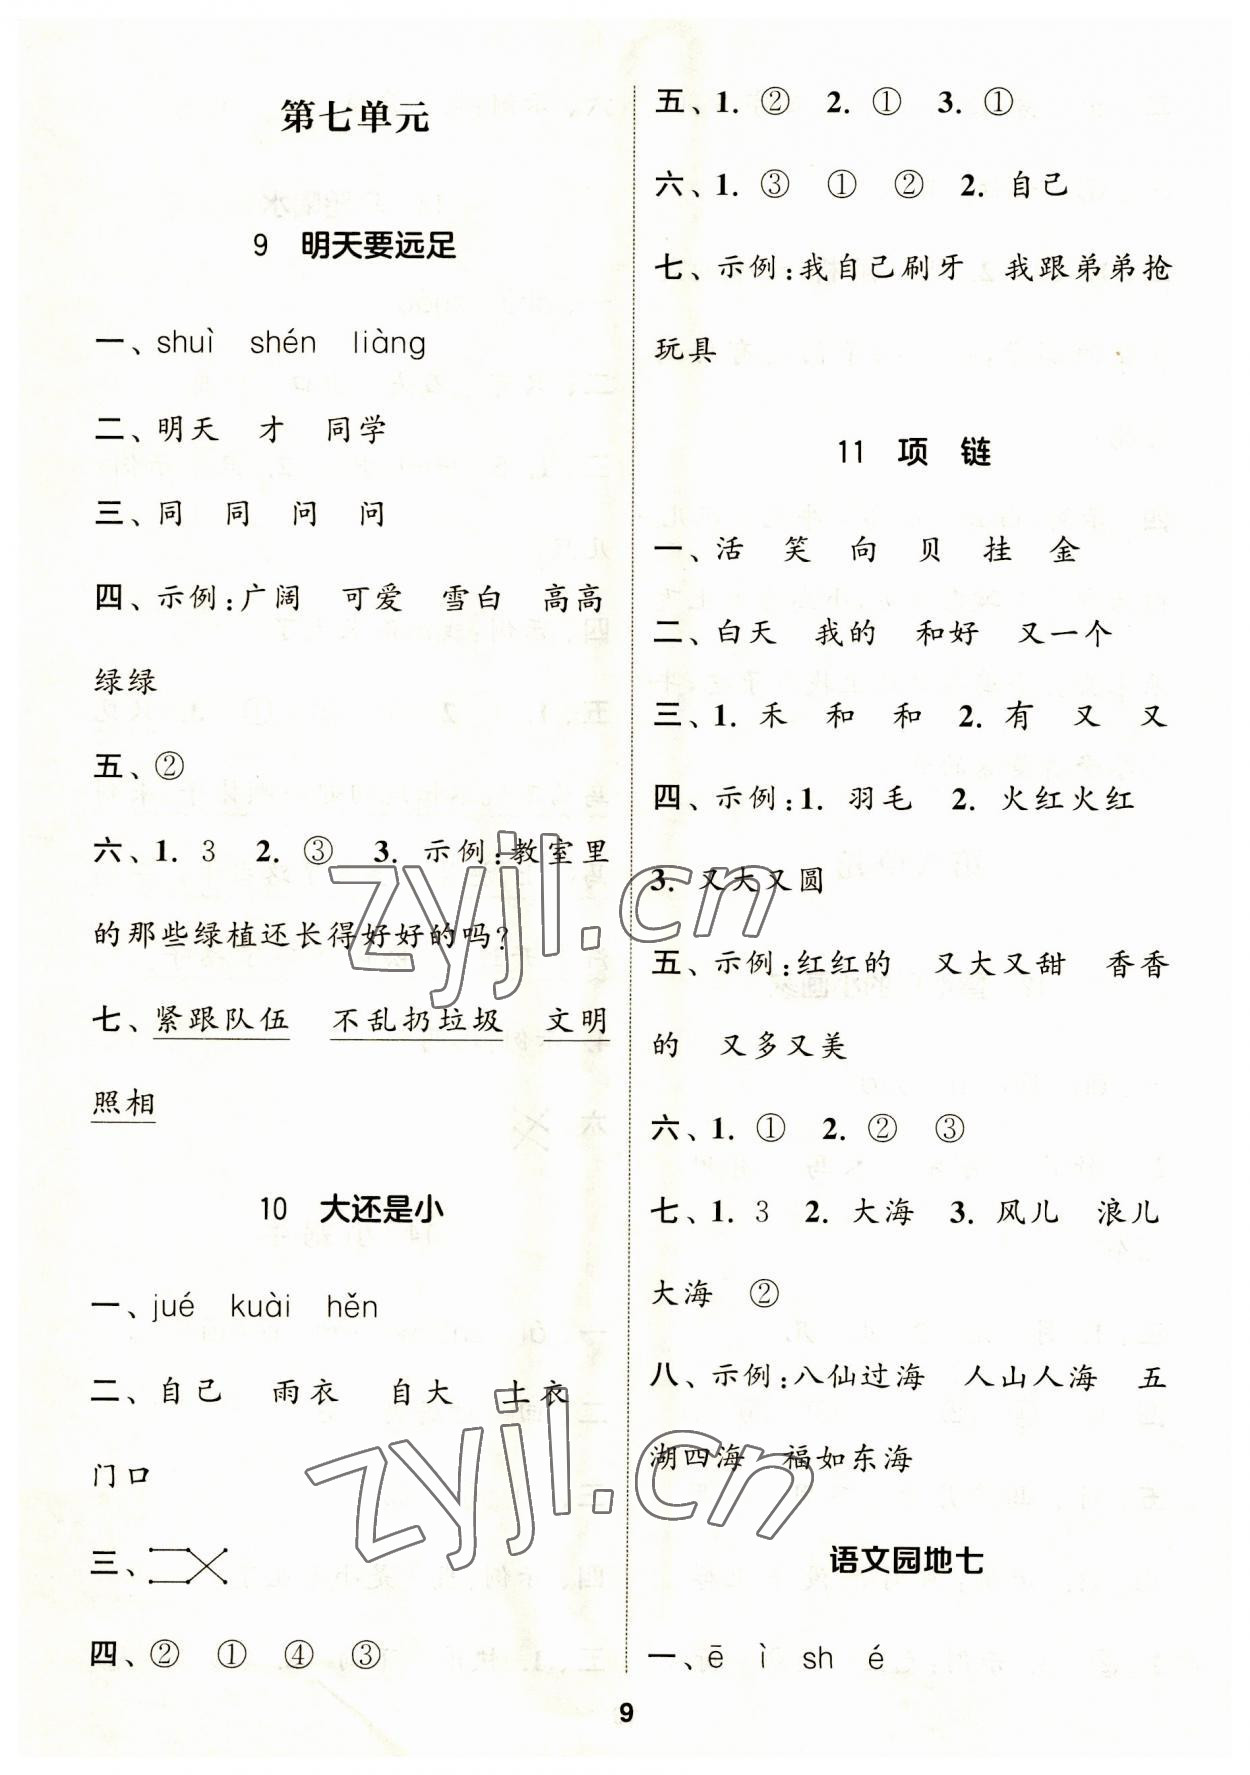 第七单元
9 明天要远足
一、shuì shén liàng
二、明天 才 同学
三、同 同 问 问
四、示例:广阔 可爱 雪白 高高
绿绿
五、②
六、1. 3 2. ③ 3. 示例:教室里
的那些绿植还长得好好的吗?
七、紧跟队伍 不乱扔垃圾 文明
照相
10 大还是小
一、jué kuài hěn
二、自己 雨衣 自大 土衣
门口
三、
四、② ① ④ ③
五、1. ② 2. ① 3. ①
六、1. ③ ① ② 2. 自己
七、示例:我自己刷牙 我跟弟弟抢
玩具
11 项 链
一、活 笑 向 贝 挂 金
二、白天 我的 和好 又一个
三、1. 禾 和 和 2. 有 又 又
四、示例:1. 羽毛 2. 火红火红
3. 又大又圆
五、示例:红红的 又大又甜 香香
的 又多又美
六、1. ① 2. ② ③
七、1. 3 2. 大海 3. 风儿 浪儿
大海 ②
八、示例:八仙过海 人山人海 五
湖四海 福如东海
语文园地七
一、ē ì sh é
9
zyjl.cn
zyjl.cn